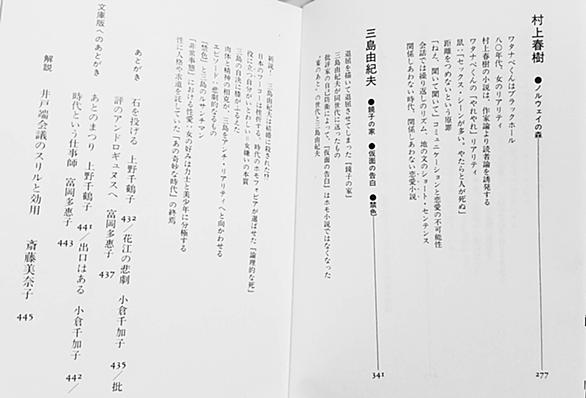 村上春樹 ●ノルウェイの森 277
ワタナベくんはブラックホール
八〇年代、女のリアリティ
村上春樹の小説は、作家論より読者論を誘発する
ワタナベくんの「やれやれ」リアリティ
鼠一「セックス・シーンが多い。やたらと人が死ぬ」
距離をつめないことって原罪
「ねえ、聞いて聞いて」コミュニケーションと恋愛の不可能性
会話では繰り返しのリズム、地の文のショート・センテンス
関係しあわない時代、関係しあわない恋愛小説
三島由紀夫 ●鏡子の家 ●仮面の告白 ●禁色 341
退屈を描いて退屈させてしまった『鏡子の家』
三島由紀夫が同世代に送ったもの
批評家の自己防衛によって、『仮面の告白』はホモ小説ではなくなった
"宴のあと"の世代と三島由紀夫
新説!三島由紀夫は結婚に殺された!?
日本のワイラーは性哲する。時代のホモフォビアが選ばせた「論理的な死」
役になった自分がいとおしい＝女嫌いの本質
三島の自決に格がこもるとしたら
肉体と精神の相克が、三島をアンチ・リアリティへと向かわせる
エピソード、悲劇的なるもの
『禁色』と三島のルサンチマン
「非常事態」における性愛・女の好みは力士と美少年に分極する
性に人格や求道を託していた「あの奇妙な時代」の終焉
あとがき 石を投げる 上野千鶴子 432／花江の悲劇 小倉千加子 435／批
評のアンドロギュヌスへ 富岡多惠子 437
文庫版へのあとがき あとのまつり 上野千鶴子 441／出口はある 小倉千加子 442／
時代という仕事師 富岡多惠子 443
解説 井戸端会議のスリルと効用 斎藤美奈子 445